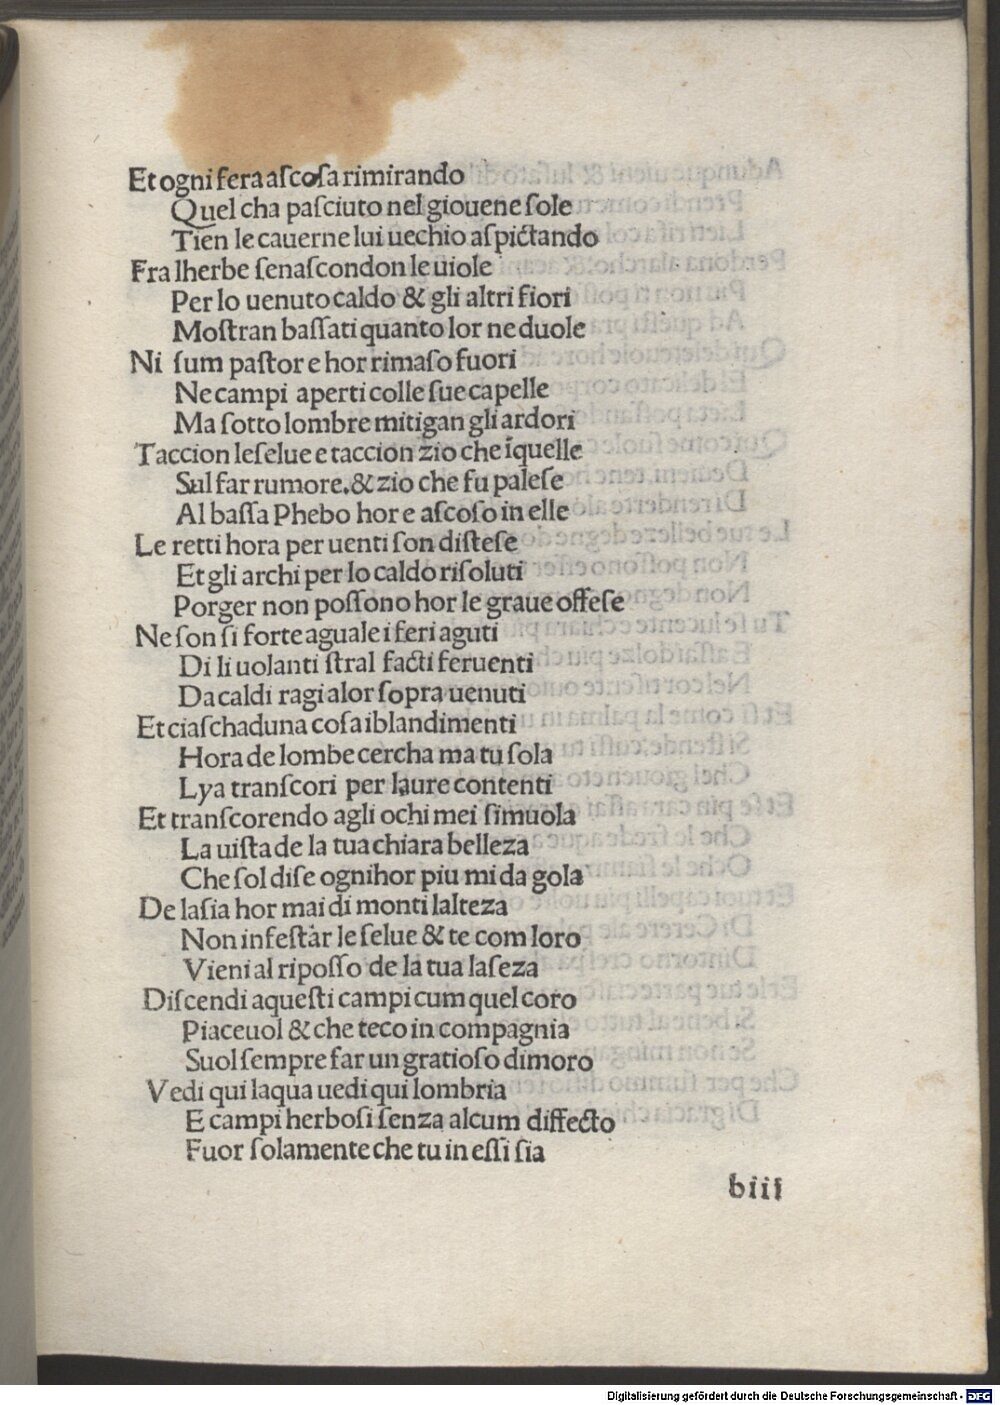 Et ogni fera aſcoſa rimirando
Quel cha paſciuto nel giouene ſole
Tien le cauerne lui uechio aſpictando
Fra lherbe ſenaſcondon le uiole
Per lo uenuto caldo & gli altri fiori
Moſtran baſſati quanto lor ne duole
Ni ſum paſtor e hor rimaſo fuori
Ne campi aperti colle ſue capelle
Ma ſotto lombre mitigan gli ardori
Taccion le ſelue e taccion zio che īquelle
Sul far rumore.& zio che fu paleſe
Al baſſa Phebo hor e aſcoſo in elle
Le retti hora per uenti ſon diſteſe
Et gli archi per lo caldo riſoluti
Porger non poſſono hor le graue offeſe
Ne ſon ſi forte aguale i feri aguti
Di li uolanti ſtral facti feruenti
Da caldi ragi alor ſopra uenuti
Et ciaſchaduna coſa iblandimenti
Hora de lombe cercha ma tu ſola
Lya tranſcori per laure contenti
Et tranſcorendo agli ochi mei ſimuola
La uiſta de la tua chiara belleza
Che ſol diſe ognihor piu mi da gola
De laſia hor mai di monti lalteza
Non infeſtar le ſelue & te com loro
Vieni al ripoſſo de la tua laſeza
Diſcendi aqueſti campi cum quel coro
Piaceuol & che teco in compagnia
Suol ſempre far un gratioſo dimoro
Vedi qui laqua uedi qui lombria
E campi herboſi ſenza alcum diffecto
Fuor ſolamente che tu in eſſi ſia
biii
Digitalisierung gefördert durch die Deutsche Forschungsgemeinschaft - DFG